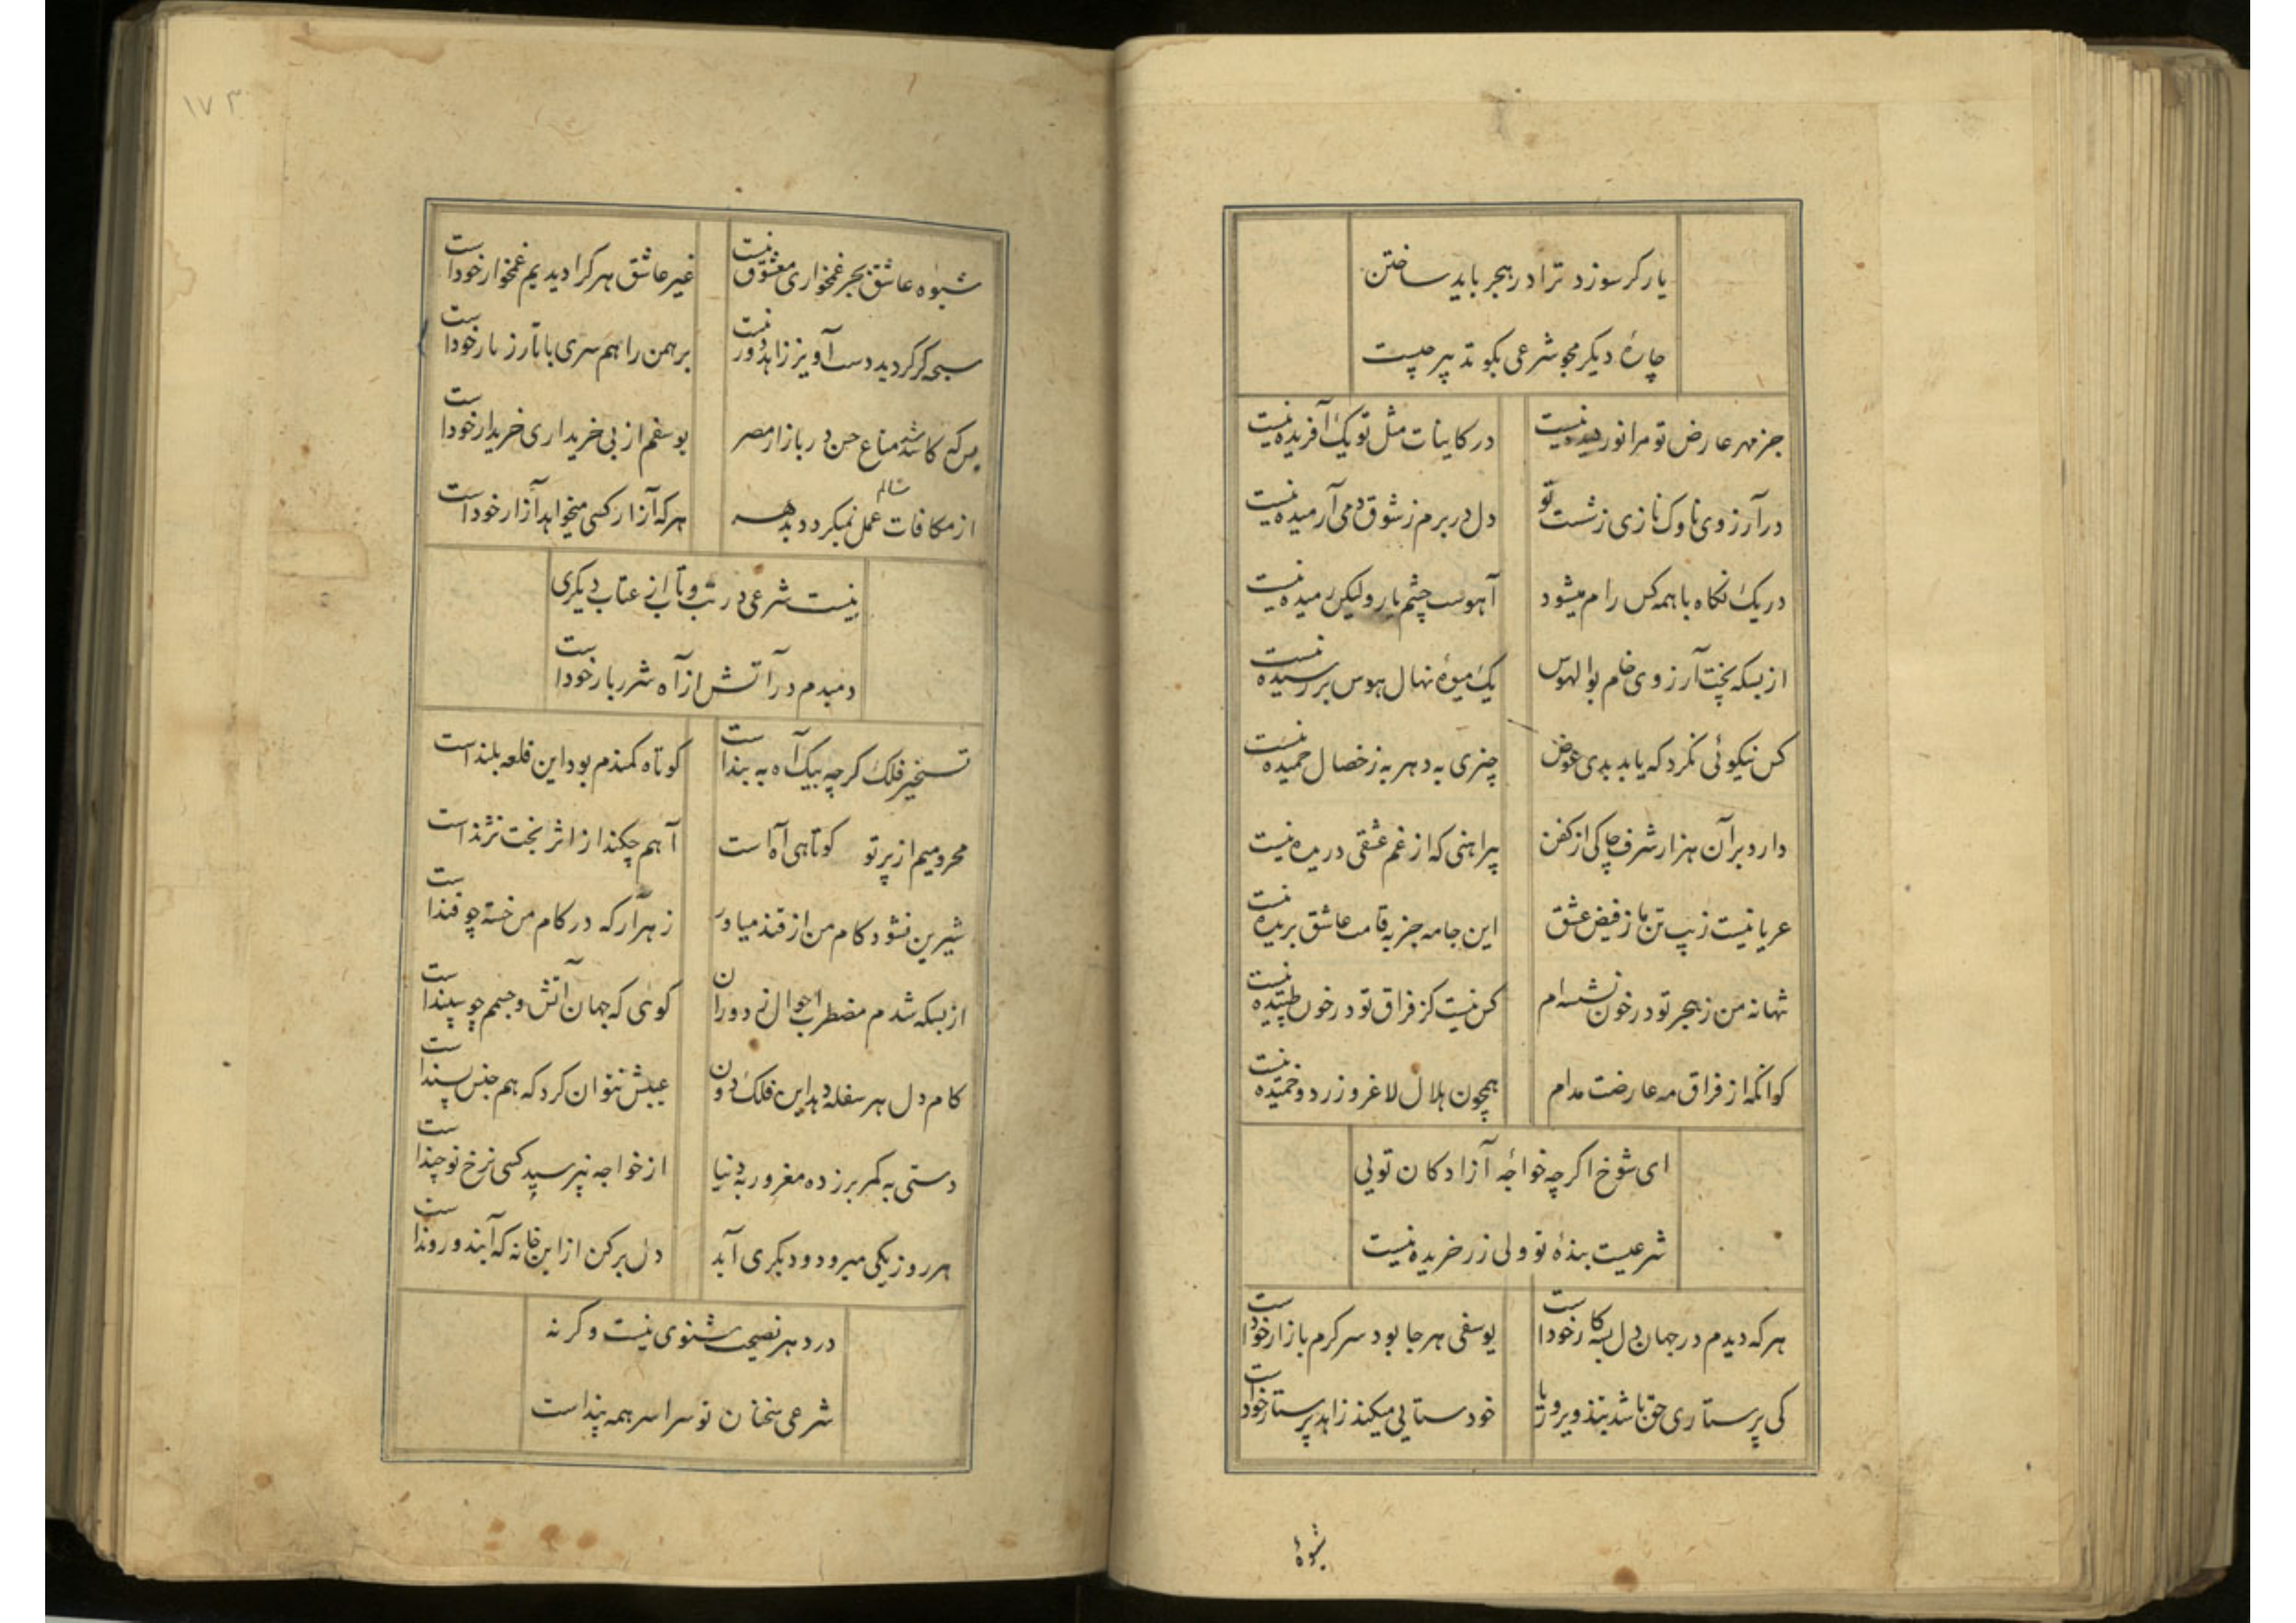 یار کر سوزد ترا در هجر باید ساختن
چارهٔ دیکر مجو شرعی بکو تدبیر چیست
جز مهر عارض تو مرا نور دیده نیست در کاینات مثل تو یک آفریده نیست
در آرزوی ناوک نازی ز شست تو دل در برم ز شوق دمی آرمیده نیست
در یک نکاه با همه کس رام میشود آهوست چشم یار ولیکن رمیده نیست
از بسکه پخت آرزوی خام بوالهوس یک میوهٔ نهال هوس بر رسیده نیست
کس نیکوئی نکرد که یابد بدی عوض چیزی به دهر به ز خصال حمیده نیست
دارد بر آن هزار شرف چاکی از کفن پیراهنی که از غم عشقی دریده نیست
عریانیست زیب تن ما ز فیض عشق این جامه جز به قامت عاشق بریده نیست
تنها نه من ز هجر تو در خون نشسته‌ام کس نیست کز فراق تو در خون طپیده نیست
کو آنکه از فراق مه عارضت مدام همچون هلال لاغر و زرد و خمیده نیست
ای شوخ اکرچه خواجهٔ آزادکان تویی
شرعیست بندهٔ تو ولی زرخریده نیست
هرکه دیدم در جهان دل بسته کار خود است یوسفی هر جا بود سرکرم بازار خود است
کی پرستاری حق باشد بتذویر و ریا خودستایی میکند زاهد پرستار خود است
شیوهٔ
۱۷۳
شیوه عاشق بجز غمخواری معشوق نیست غیر عاشق هر کرا دیدیم غمخوار خود است
سبحه کر کردید دست آویز زاهد دور نیست برهمن را هم سری با تار زنار خود است
من که کاشد متاع حسن در بازار مصر یوسفم از بی خریداری خریدار خود است
از مکافات عمل سالم نمیکردد بدهر هرکه آزار کسی میخواهد آزار خود است
نیست شرعی در تب و تاب از عتاب دیکری
دمبدم در آتش از آه شرربار خود است
تسخیر فلک کرچه بیک آه به بند است کوتاه کمندم بود این قلعه بلند است
محرومیم از پرتو کوتاهی آه است آهم چکند از اثر بخت نژند است
شیرین نشود کام من از قند میاور زهر آر که در کام من خسته چو قند است
از بسکه شدم مضطرب احوال ز دوران کوئی که جهان آتش و جسمم چو سپند است
کام دل هر سفله دهد این فلک دون عیبش نتوان کرد که هم جنس پسند است
دستی به کمر بر زده مغرور به دنیا از خواجه نپرسید کسی نرخ تو چند است
هر روز یکی میرود و دیکری آید دل بر کن از این خانه که آیند و روند است
در دهر نصیحت شنوی نیست وکرنه
شرعی سخنان تو سراسر همه پند است